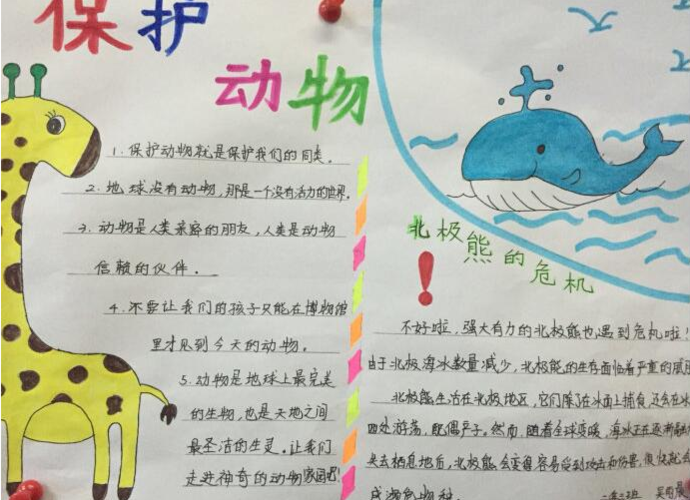 保护
动物
1、保护动物就是保护我们的同类。
2、地球没有动物，那是一个没有活力的世界。
3、动物是人类亲密的朋友，人类是动物
信赖的伙伴。
4、不要让我们的孩子只能在博物馆
里才见到今天的动物。
5、动物是地球上最完美
的生物，也是天地之间
最圣洁的生灵。让我们
走进神奇的动物家园吧！
北极熊的危机！
不好啦，强大有力的北极熊也遇到危机啦！
由于北极海冰数量减少，北极熊的生存面临着严重的威胁
北极熊生活在北极地区，它们除了在冰面上捕食，还会在冰
四处游荡，配偶产子。然而，随着全球变暖，海冰正在逐渐融
失去栖息地后，北极熊会变得容易受到攻击和伤害，很快就会
成濒危物种。